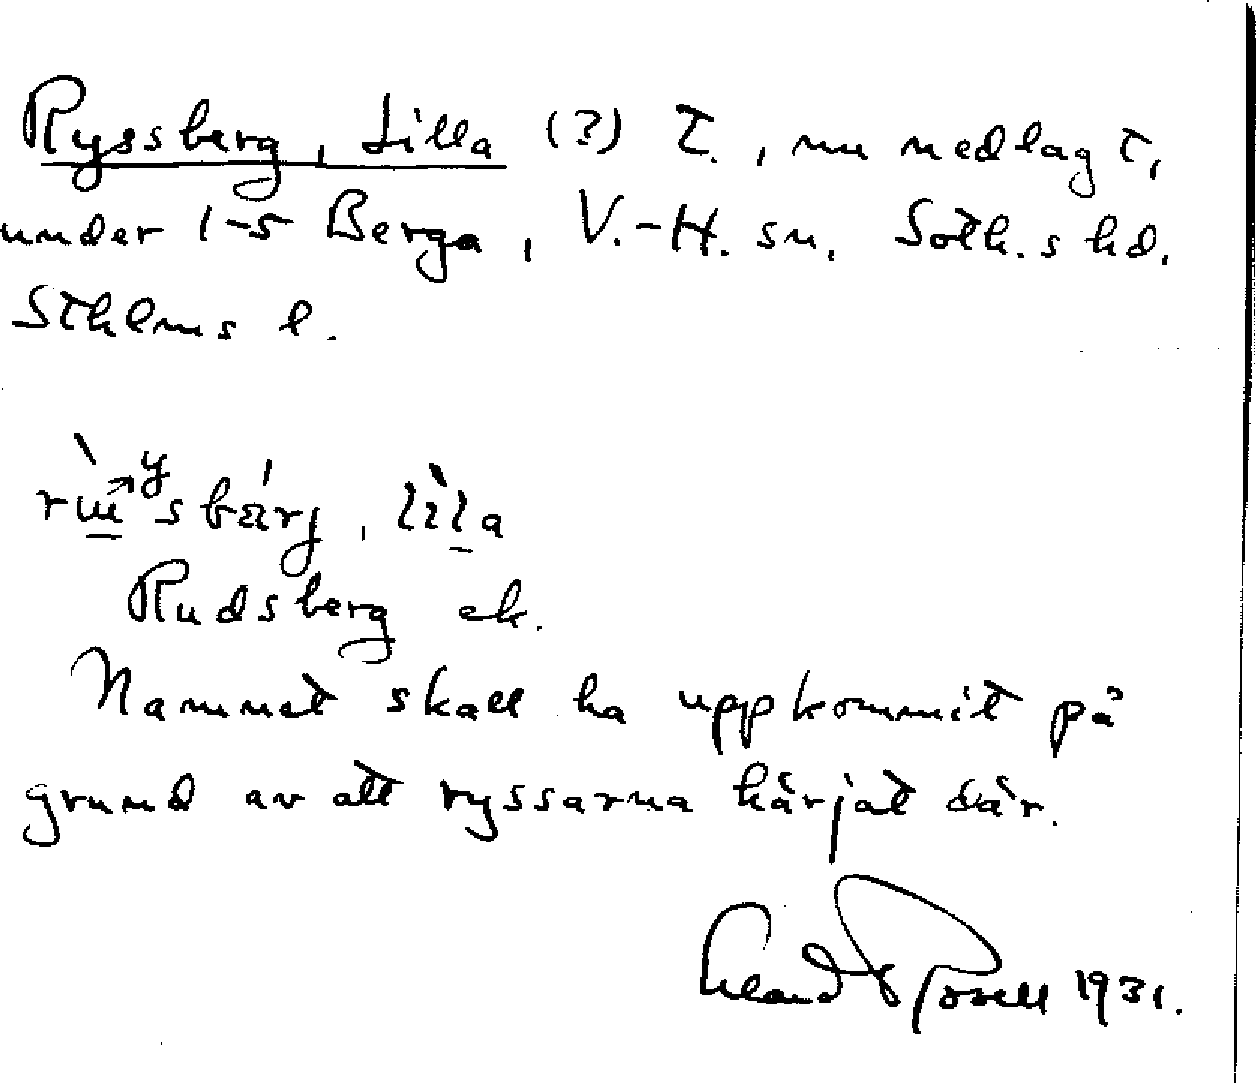 Ryssberg, Lilla (?) T., nu nedlagt,
under 1-5 Berga, V.-H. sn. Soth.s hd.
Sthlms l.
lìla
Rudsberg ek.
Namnet skall ha uppkommit på
grund av att ryssarna härjat där.
Erland Rosell 1931.